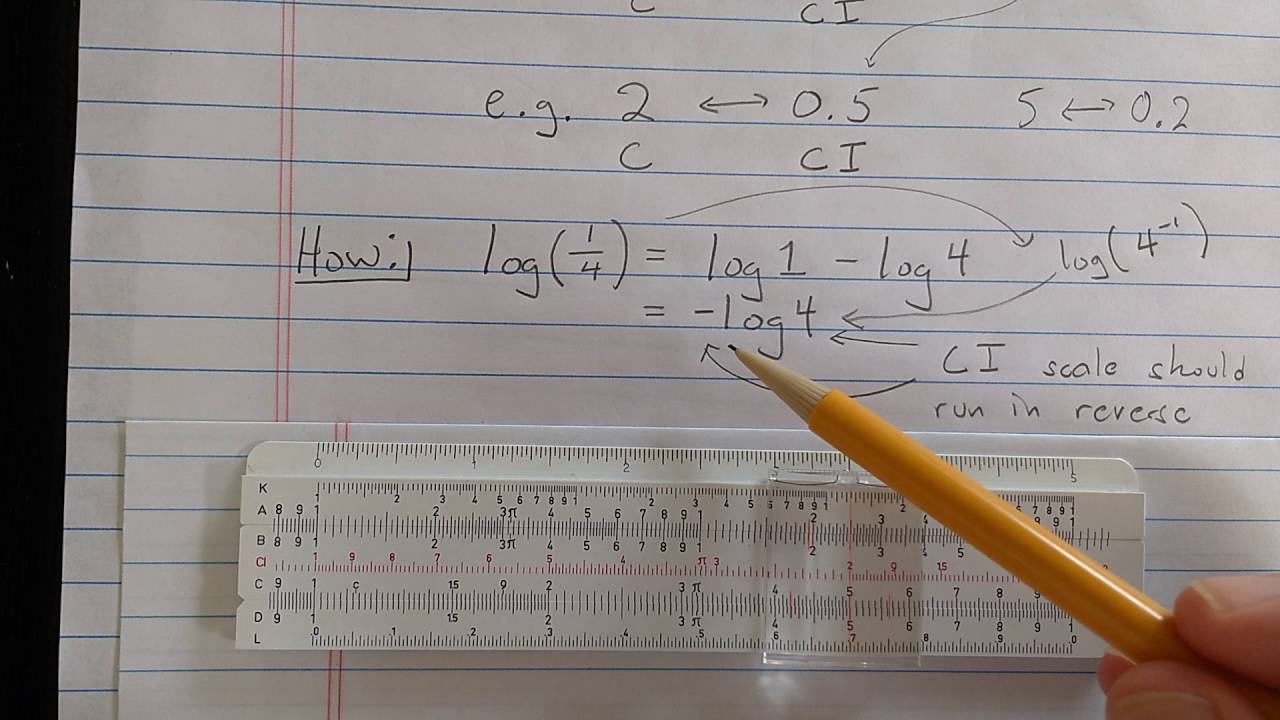 C CI
e.g. 2 ↔ 0.5 5 ↔ 0.2
C CI
How: log(1/4) = log 1 - log 4 log(4⁻¹)
= -log 4
CI scale should
run in reverse
0 1 2 5
K 1 2 3 4 5 6 7 8 9 1 2 3 4 5 6 7 8 9 1 2 6 7 8 9 1
A 8 9 1 2 3 π 4 5 6 7 8 9 1 2 3 4 1
B 8 9 1 2 3 π 4 5 6 7 8 9 1 2 3 4 5
CI 1 9 8 7 6 5 4 π 3 2 1.5
C 9 1 1.5 2 3 π 4 5 6 7 8 9 1
D 9 1 1.5 2 3 π 4 5 6 7 8 9 1
L .0 .1 .2 .3 .4 .5 .6 .7 .8 .9 .0